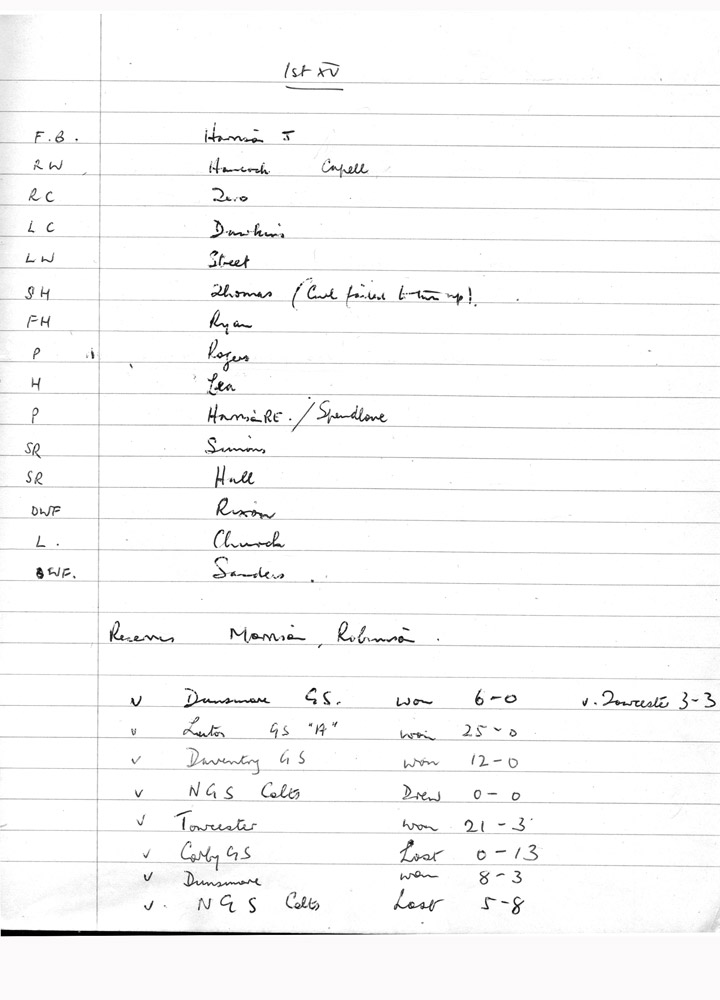 1st XV
F.B. Harrison J
RW Hancock Capell
RC
LC Dawkins
LW Street
SH Thomas ( failed to turn up!
FH Ryan
P Rogers
H Lea
P Harrison RE. / Spendlove
SR Simons
SR Hall
OWF Rixon
L. Church
BWF. Sanders.
Reserves Morrison, Robinson.
v Dunsmore GS. won 6-0 v. Towcester 3-3
v Luton GS "A" won 25-0
v Daventry GS won 12-0
v NGS Colts Drew 0-0
v Towcester won 21-3
v Corby GS Lost 0-13
v Dunsmore won 8-3
v. NGS Colts Lost 5-8